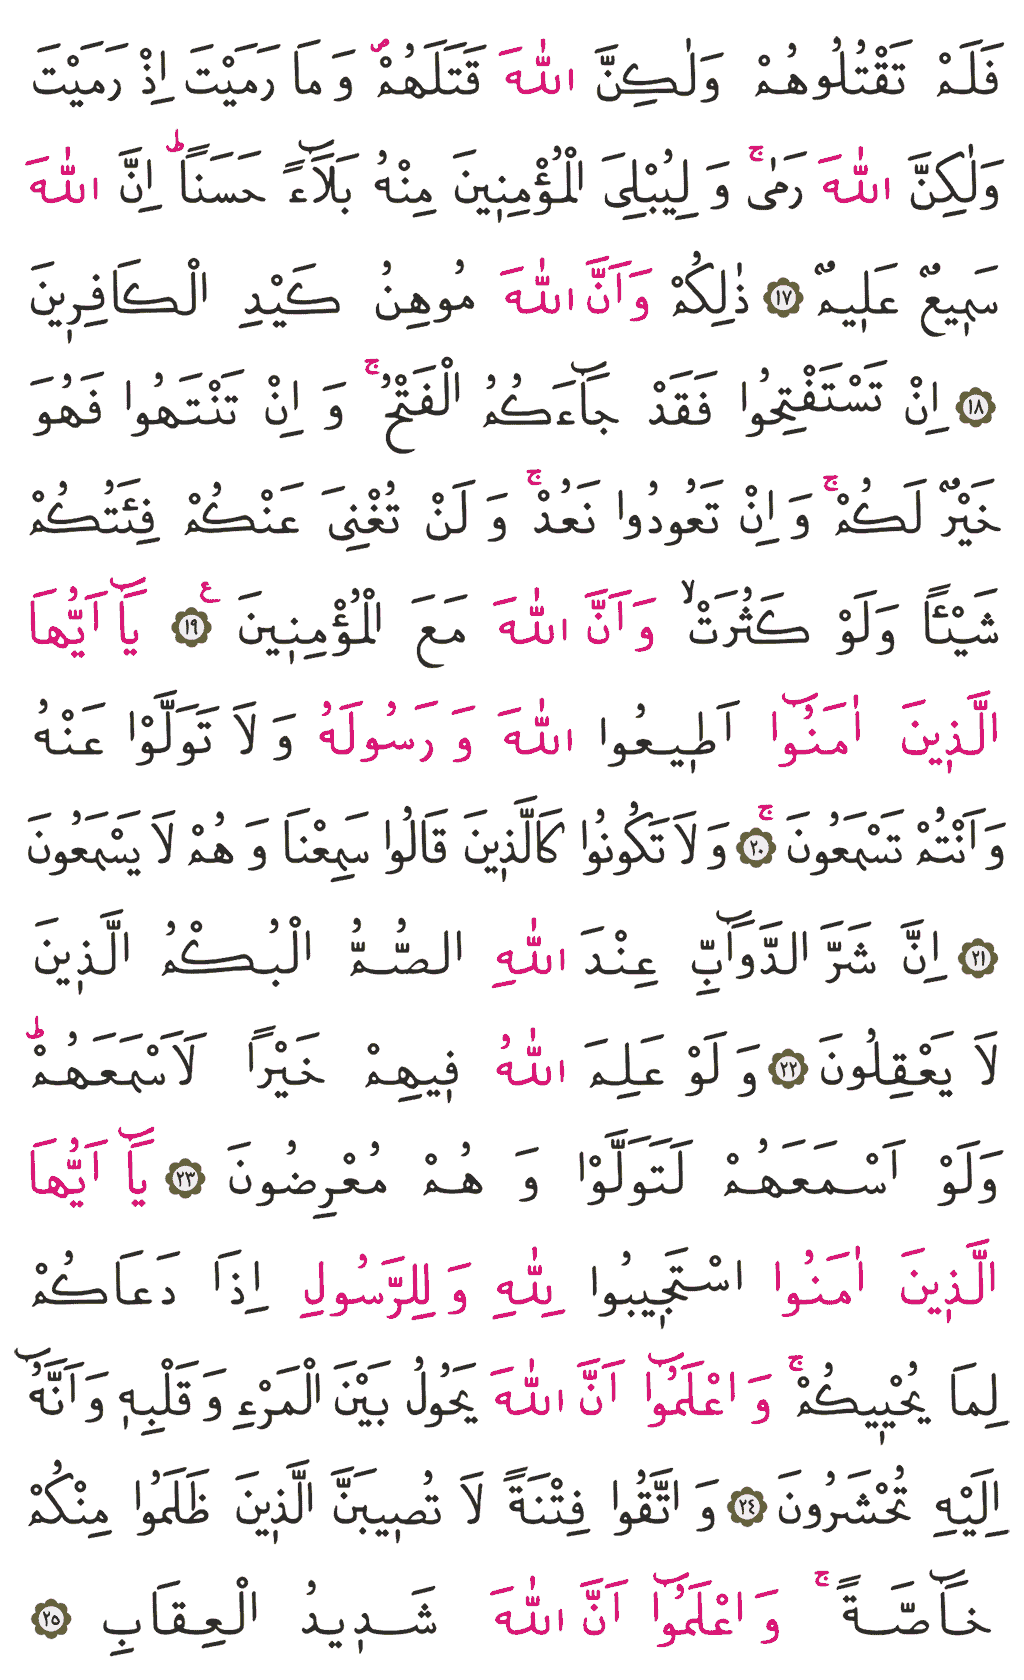 فَلَمْ تَقْتُلُوهُمْ وَلٰكِنَّ اللّٰهَ قَتَلَهُمْۖ وَ مَا رَمَيْتَ اِذْ رَمَيْتَ
وَلٰكِنَّ اللّٰهَ رَمٰىۚ وَ لِيُبْلِىَ الْمُؤْمِنٖينَ مِنْهُ بَلَٓاءً حَسَنًاؕ اِنَّ اللّٰهَ
سَمٖيعٌ عَلٖيمٌ ﴿١٧﴾ ذٰلِكُمْ وَ اَنَّ اللّٰهَ مُوهِنُ كَيْدِ الْكَافِرٖينَ
﴿١٨﴾ اِنْ تَسْتَفْتِحُوا فَقَدْ جَٓاءَكُمُ الْفَتْحُۚ وَ اِنْ تَنْتَهُوا فَهُوَ
خَيْرٌ لَكُمْۚ وَ اِنْ تَعُودُوا نَعُدْۚ وَ لَنْ تُغْنِىَ عَنْكُمْ فِئَتُكُمْ
شَيْـًٔا وَلَوْ كَثُرَتْۙ وَ اَنَّ اللّٰهَ مَعَ الْمُؤْمِنٖينَ ﴿١٩﴾ ع يَٓا اَيُّهَا
الَّذٖينَ اٰمَنُٓوا اَطٖيعُوا اللّٰهَ وَ رَسُولَهُ وَ لَا تَوَلَّوْا عَنْهُ
وَ اَنْتُمْ تَسْمَعُونَۚ ﴿٢٠﴾ وَ لَا تَكُونُوا كَالَّذٖينَ قَالُوا سَمِعْنَا وَ هُمْ لَا يَسْمَعُونَ
﴿٢١﴾ اِنَّ شَرَّ الدَّوَٓابِّ عِنْدَ اللّٰهِ الصُّمُّ الْبُكْمُ الَّذٖينَ
لَا يَعْقِلُونَ ﴿٢٢﴾ وَ لَوْ عَلِمَ اللّٰهُ فٖيهِمْ خَيْرًا لَاَسْمَعَهُمْؕ
وَلَوْ اَسْمَعَهُمْ لَتَوَلَّوْا وَ هُمْ مُعْرِضُونَ ﴿٢٣﴾ يَٓا اَيُّهَا
الَّذٖينَ اٰمَنُوا اسْتَجٖيبُوا لِلّٰهِ وَ لِلرَّسُولِ اِذَا دَعَاكُمْ
لِمَا يُحْيٖيكُمْۚ وَ اعْلَمُٓوا اَنَّ اللّٰهَ يَحُولُ بَيْنَ الْمَرْءِ وَ قَلْبِهٖ وَ اَنَّهُٓ
اِلَيْهِ تُحْشَرُونَ ﴿٢٤﴾ وَ اتَّقُوا فِتْنَةً لَا تُصٖيبَنَّ الَّذٖينَ ظَلَمُوا مِنْكُمْ
خَٓاصَّةًۚ وَ اعْلَمُٓوا اَنَّ اللّٰهَ شَدٖيدُ الْعِقَابِ ﴿٢٥﴾